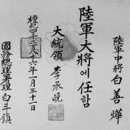 陸軍中將 白善燁
陸軍大將에 任함
大統領 李承晩
檀紀四二八六年一月三十一日
國務總理署理 白斗鎭